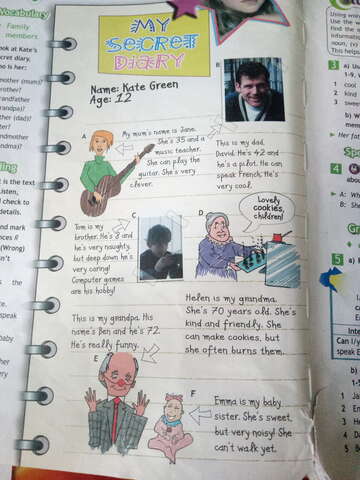 Vocabulary
Family
members
ook at Kate's
cret diary.
ho is her:
other (mum)?
rother?
randfather
randpa)?
ther (dad)?
ster?
andmother
randma)?
ling
t is the text
Listen,
d check to
details.
and mark
nces if
(Wrong)
MY
SECRET
DIARY
Name: Kate Green
Age: 12
B
A
My mum's name is Jane.
She's 35 and a
music teacher.
She can play the
guitar. She's very
clever.
This is my dad,
David. He's 42 and
he's a pilot. He can
speak French. He's
very cool.
C
Tom is my
brother. He's 8 and
he's very naughty,
but deep down he's
very caring!
Computer games
are his hobby!
D
Lovely
cookies,
children!
Helen is my grandma.
She's 70 years old. She's
kind and friendly. She
can make cookies, but
she often burns them.
This is my grandpa. His
name's Ben and he's 72.
He's really funny.
E
F
Emma is my baby
sister. She's sweet,
but very noisy! She
can't walk yet.
using
Look
Use the
Find the
informatio
noun, (v)
This helps
3 a) Us
1 cool
2 kind
3 swee
b) W
me
Her bro
Spe
4
A:
B: She
Gra
5 a)
Inte
Can I/y
speak E
b)
1 Ja
2 En
3 He
4 Da
5 B